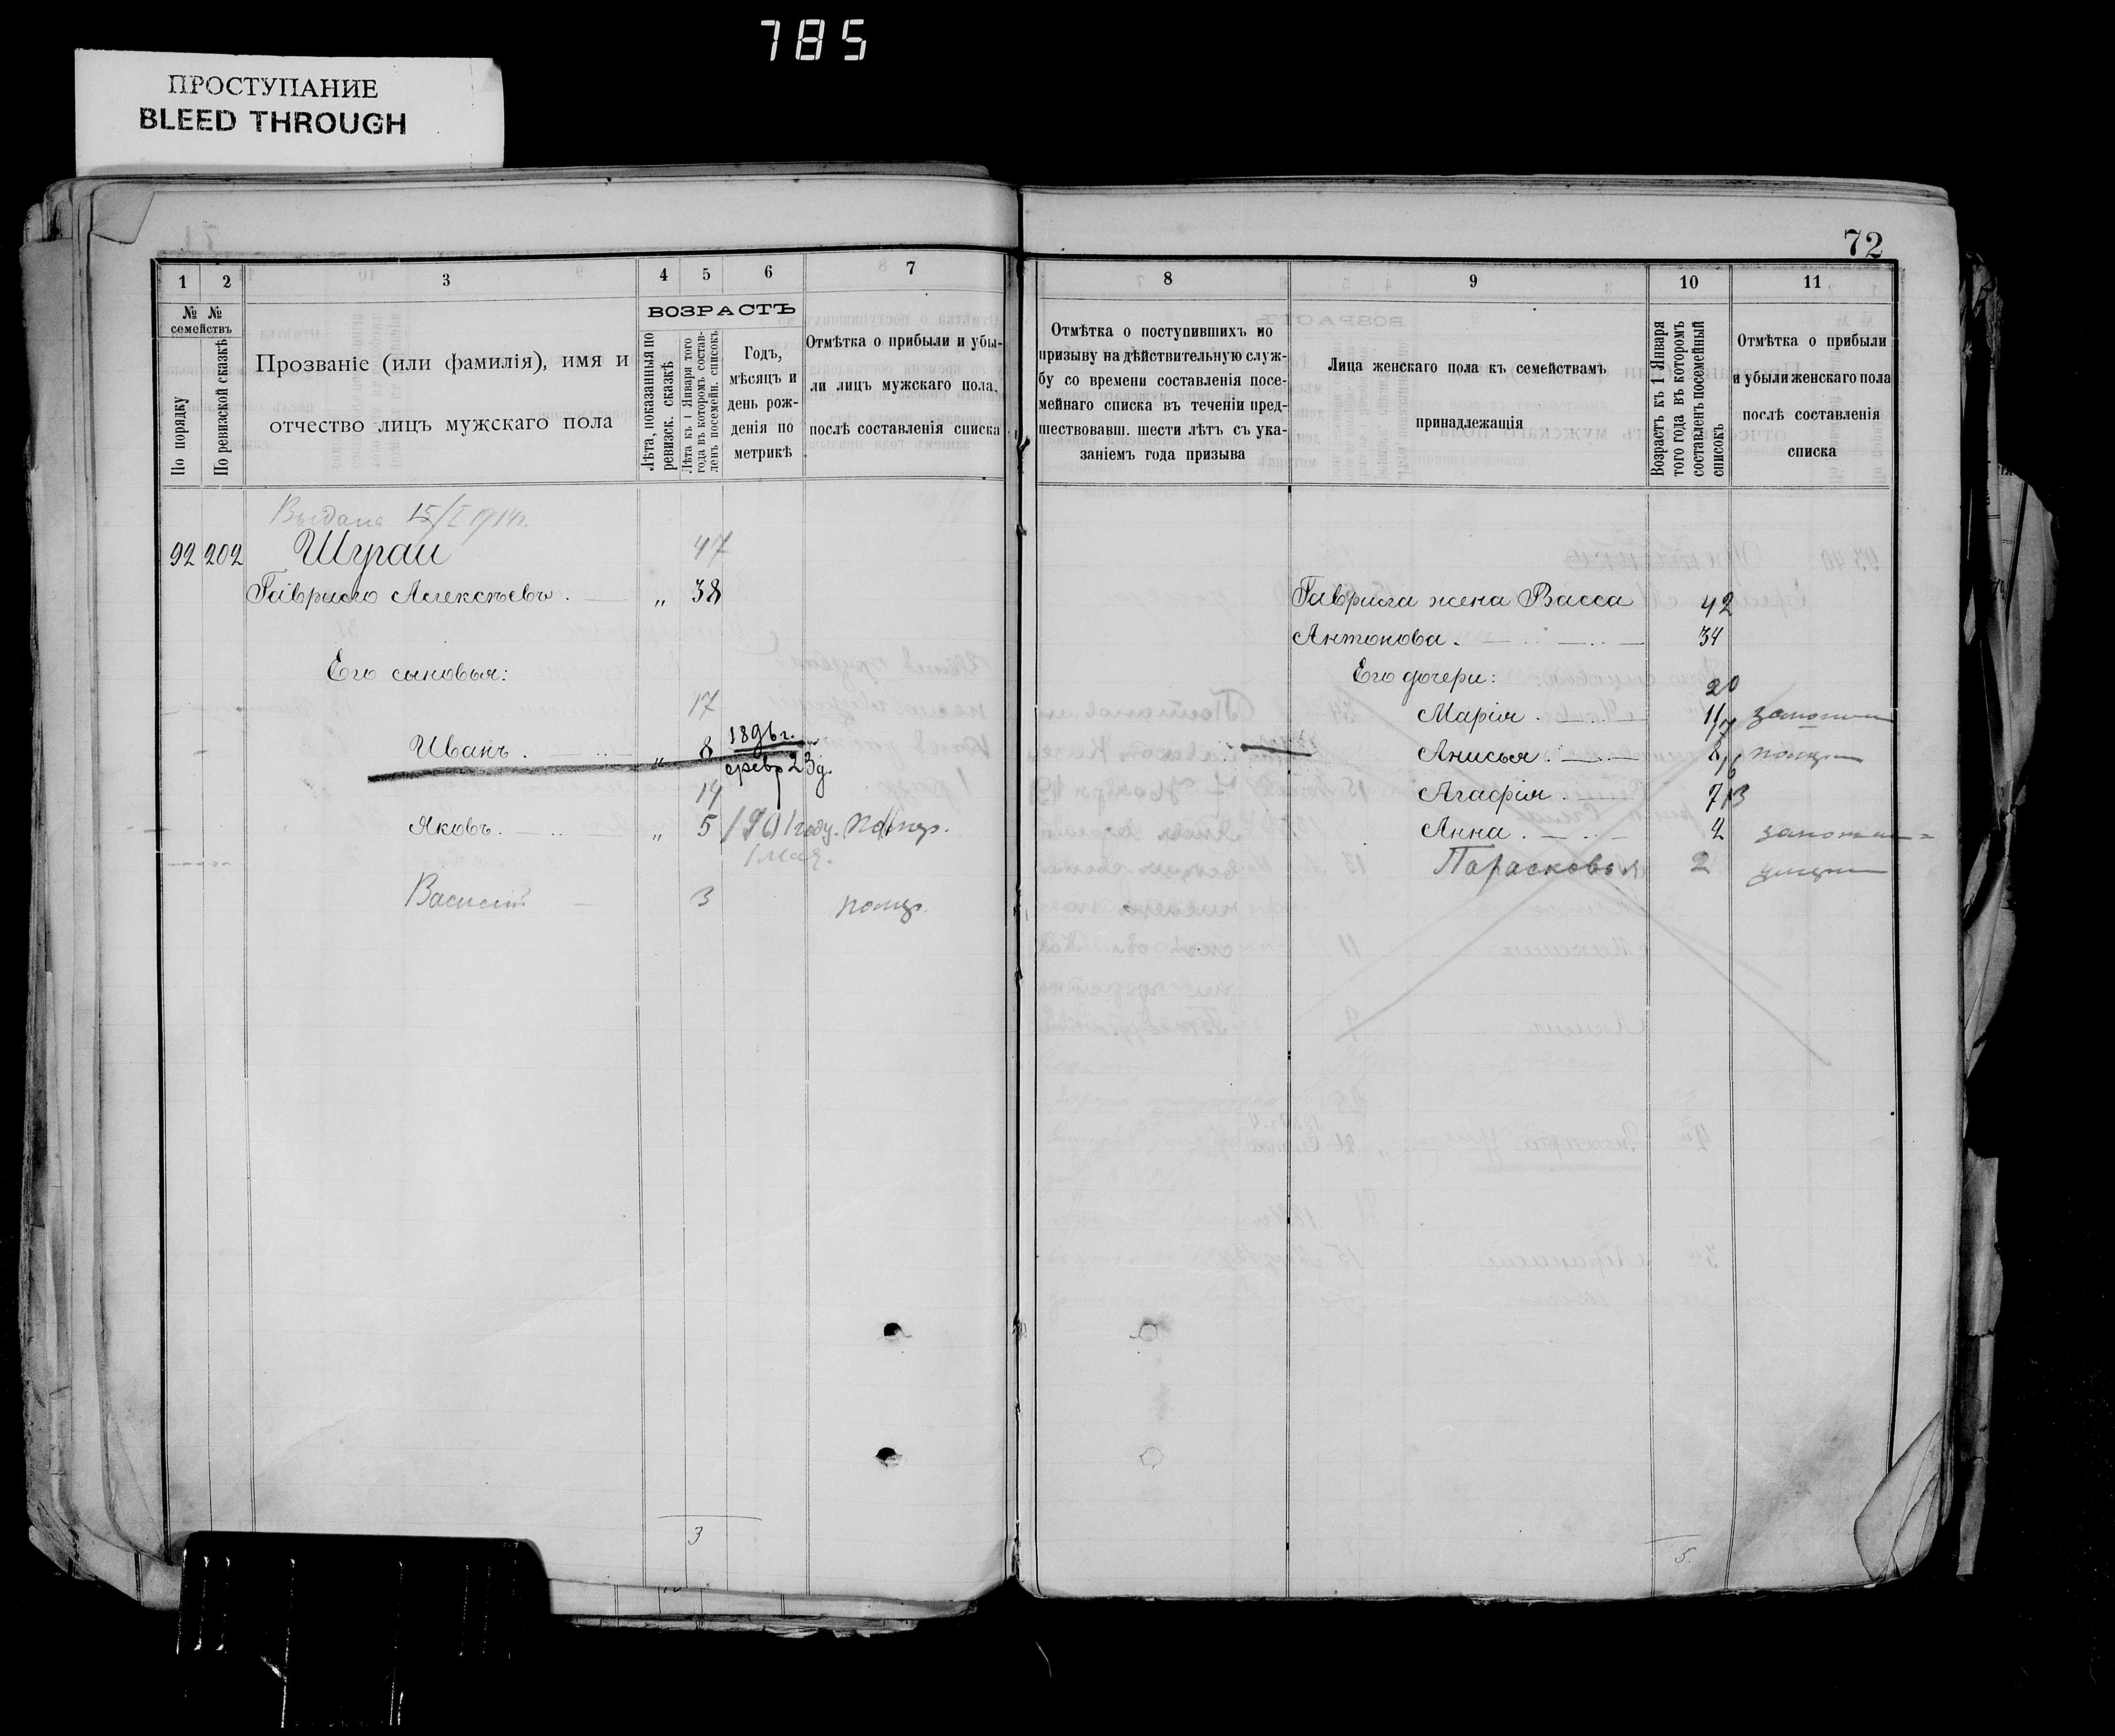 785
ПРОСТУПАНИЕ
BLEED THROUGH
72
1 2 3 4 5 6 7
№ № семействъ
По порядку
По ревизской сказкѣ
Прозваніе (или фамилія), имя и
отчество лицъ мужскаго пола
ВОЗРАСТЪ
Лѣта, показанныя по
ревизск. сказкѣ
Лѣта къ 1 Января того
года въ которомъ состав-
ленъ посемейн. списокъ
Годъ,
мѣсяцъ и
день рож-
денія по
метрикѣ
Отмѣтка о прибыли и убы-
ли лицъ мужскаго пола,
послѣ составленія списка
Выдана 15/I 1914г.
92 202 Шураи 47
Гавриило Алексѣевъ . — „ 38
Его сыновья:
17
Иванъ . — „ 8 1896 г.
февр 23 д.
14
Яковъ . — „ 5 1901 году. помер.
1 мая.
Василий — 3 помер.
3
8 9 10 11
Отмѣтка о поступившихъ по
призыву на дѣйствительную служ-
бу со времени составленія посе-
мейнаго списка въ теченіи пред-
шествовавш. шести лѣтъ съ ука-
заніемъ года призыва
Лица женскаго пола къ семействамъ
принадлежащія
Возрастъ къ 1 Января
того года въ которомъ
составленъ посемейный
списокъ
Отмѣтка о прибыли
и убыли женскаго пола
послѣ составленія
списка
Гавриила жена Васса 42
Антонова . — 34
Его дочери:
20
Марія . — 11
17
Анисья . — 8
16
Агафія . — 7 13
Анна . — 4
Парасковья 2
5.